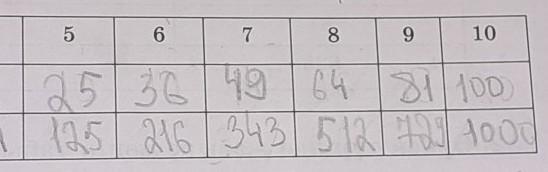 5 6 7 8 9 10
25 36 49 64 81 100
125 216 343 512 729 1000